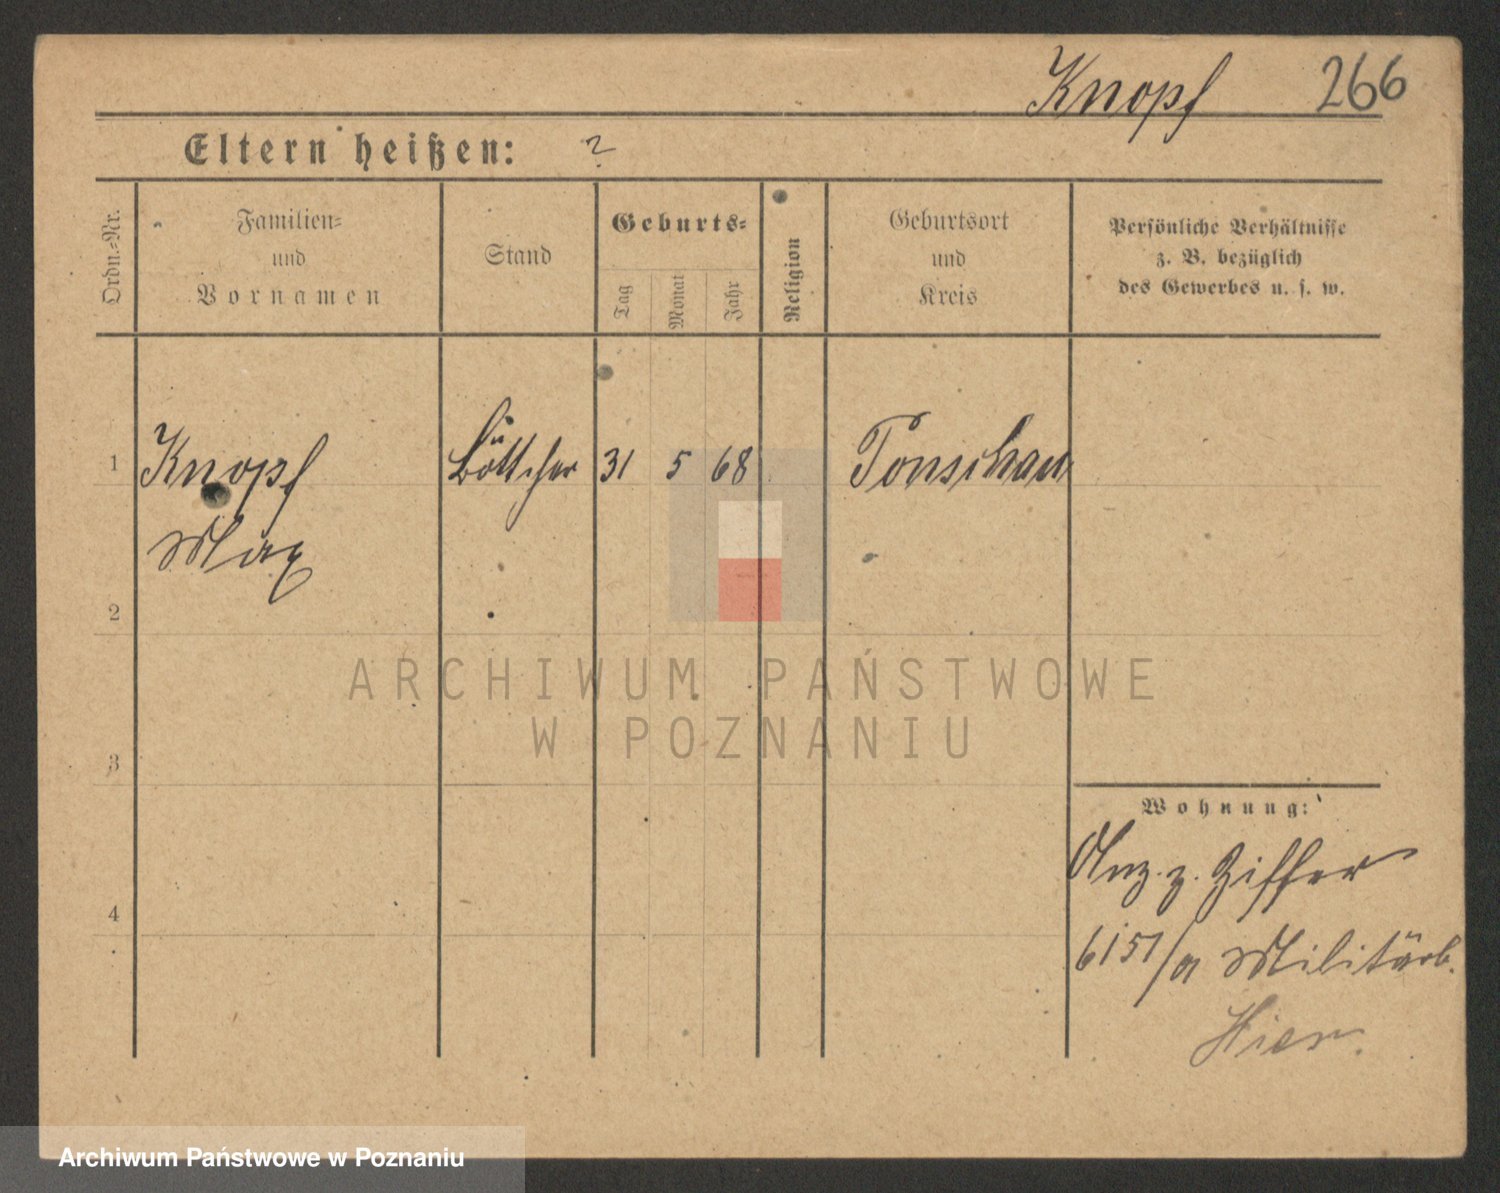 Knopf 266
Eltern heißen: ?
Ordn.-Nr.
Familien-
und
Vornamen
Stand
Geburts-
Tag
Monat
Jahr
Religion
Geburtsort
und
Kreis
Persönliche Verhältnisse
z. B. bezüglich
des Gewerbes u. s. w.
1 Knopf Böttcher 31 5 68 Tonschau
Max
2
ARCHIWUM PAŃSTWOWE
W POZNANIU
3
Wohnung:
Anz. z. Ziffer
4
6151/a Militärb.
Hier.
Archiwum Państwowe w Poznaniu